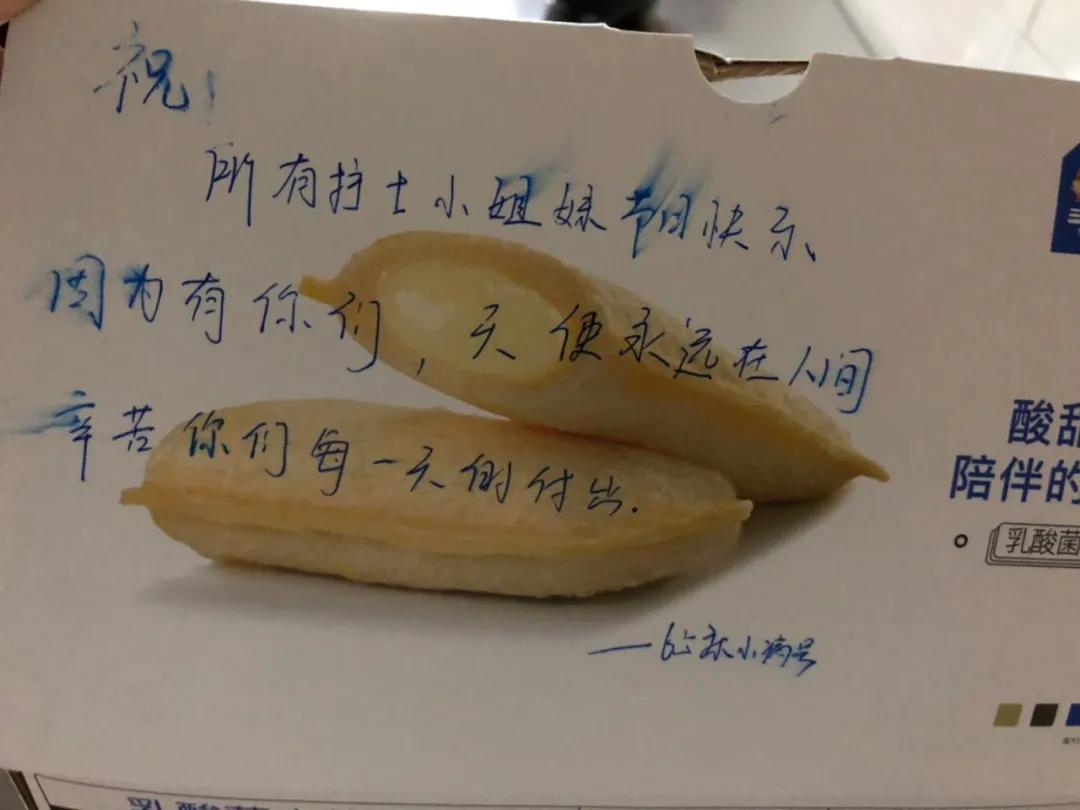 祝!
所有护士小姐妹节日快乐
因为有你们,天使永远在人间
辛苦你们每一天的付出.
——6床小病号
酸甜
陪伴的
乳酸菌